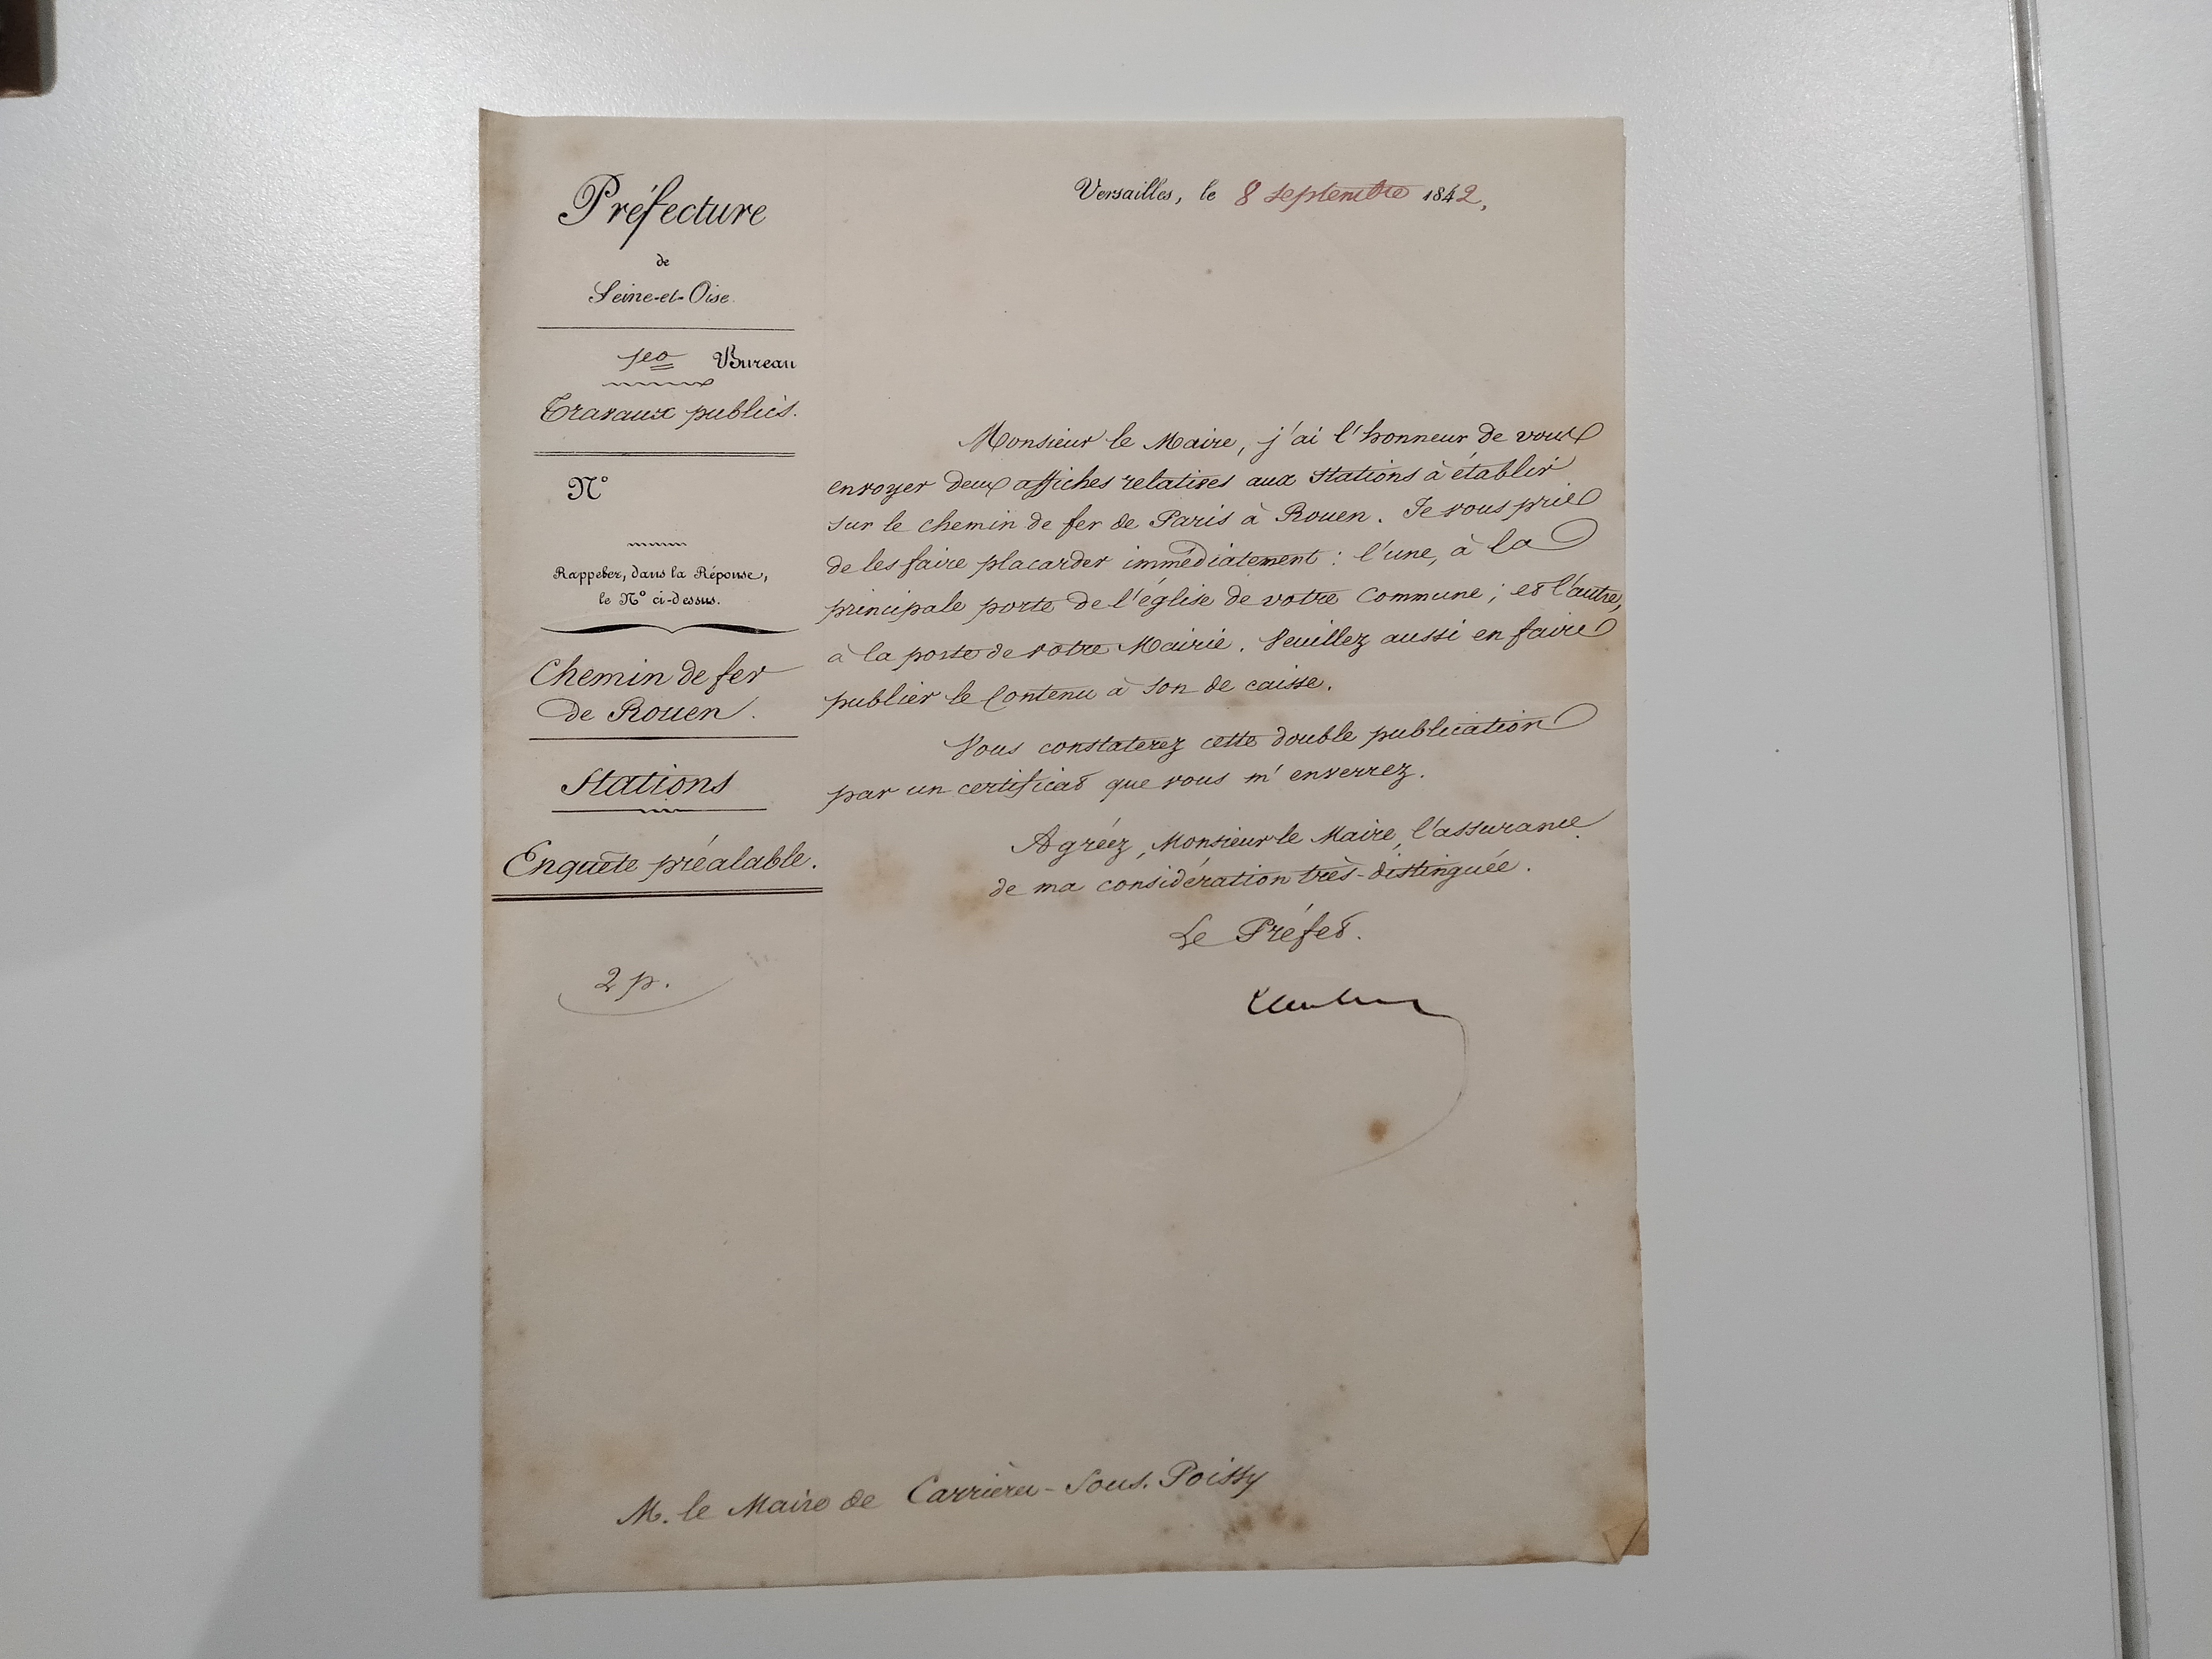 Préfecture
de
Seine-et-Oise.
Bureau
Travaux publics.
N°
Rappeler, dans la Réponse,
le N° ci-dessus.
Chemin de fer
de Rouen.
Stations
Enquête préalable.
2 p.
Versailles, le 8 Septembre 1842,
Monsieur le Maire, j'ai l'honneur de vous
envoyer deux affiches relatives aux Stations à établir
sur le chemin de fer de Paris à Rouen. Je vous prie
de les faire placarder immédiatement : l'une, à la
principale porte de l'église de votre Commune ; et l'autre,
à la porte de votre Mairie. Veuillez aussi en faire
publier le Contenu à son de caisse.
Vous constaterez cette double publication
par un certificat que vous m'enverrez.
Agréez, Monsieur le Maire, l'assurance
de ma considération très-distinguée.
Le Préfet.
M. le Maire de Carrières-Sous-Poissy